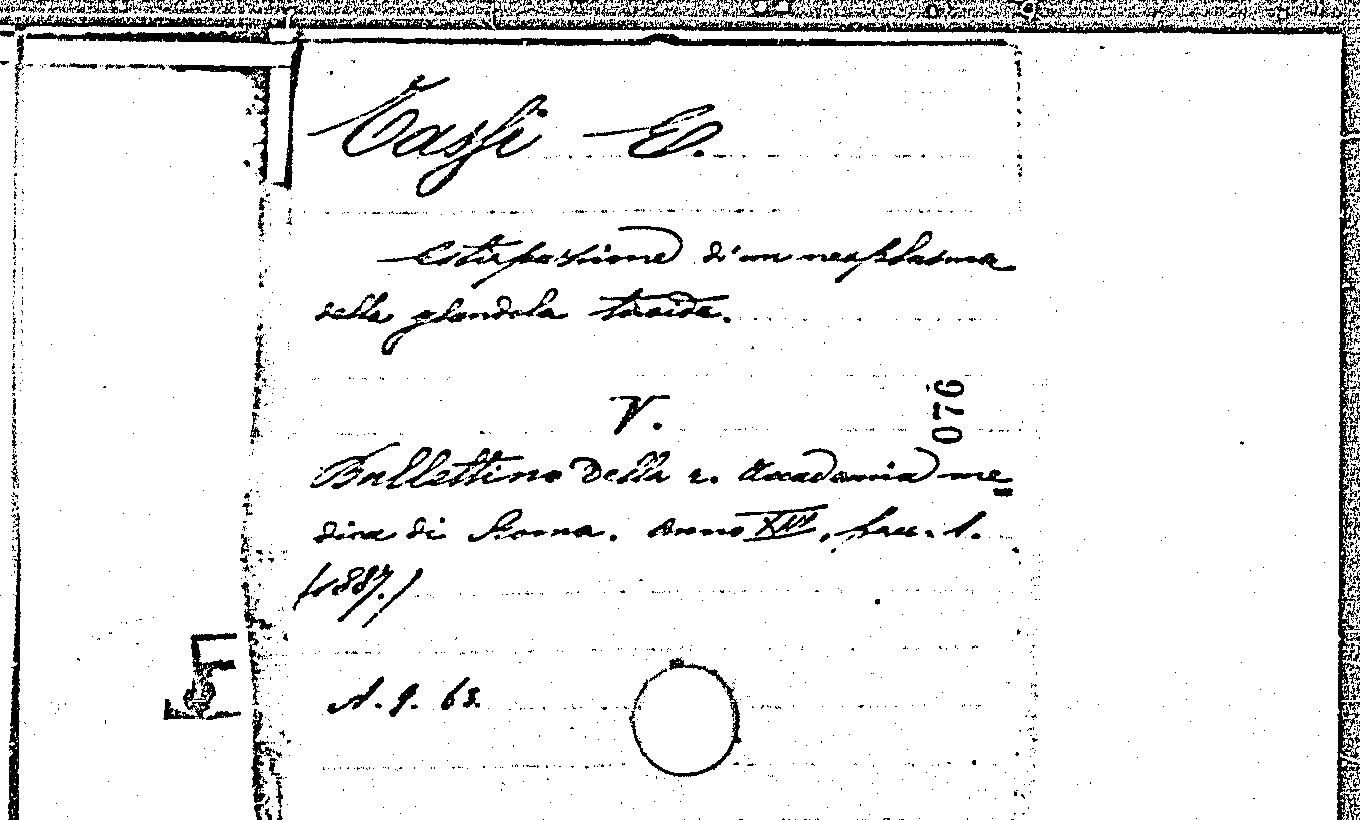 Tassi E.
Estirpazione di un neoplasma
della glandola tiroide.
V.
Bullettino della r. Accademia me
dica di Roma. Anno XIII, fasc. 1.
(1887.)
A. g. 63.
076